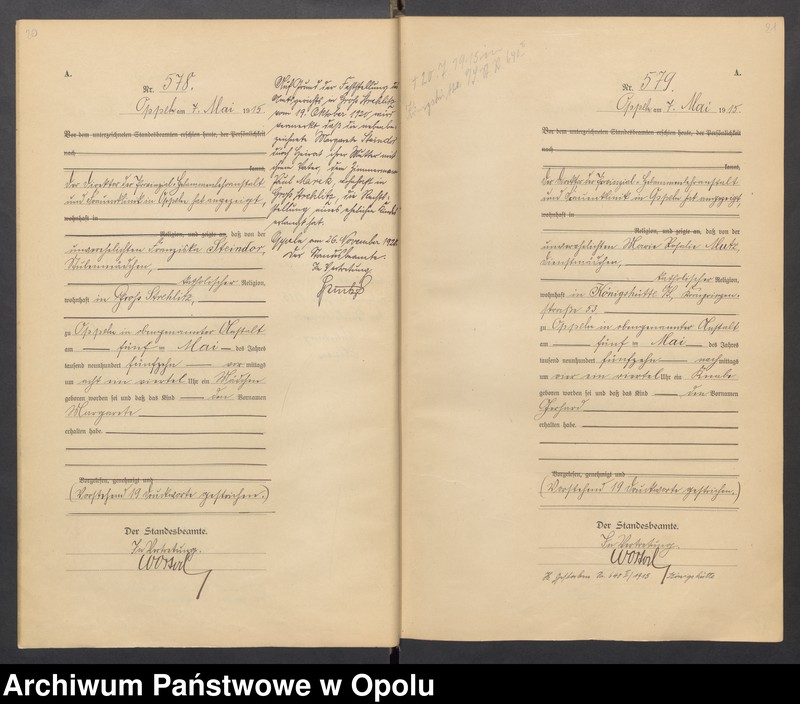 20
A.
Nr. 578.
Oppeln am 7. Mai 1915
Vor dem unterzeichneten Standesbeamten erschien heute, der Persönlichkeit
nach
kannt,
Der Direktor der Provinzial-Hebammenlehranstalt
und Frauenklinik in Oppeln hat angezeigt,
wohnhaft in
Religion, und zeigte an, daß von der
unverehelichten Franziska Steindor,
Stubenmädchen,
katholischer Religion,
wohnhaft in Groß Strehlitz,
zu Oppeln in obengenannter Anstalt
am fünften Mai des Jahres
tausend neunhundert fünfzehn vormittags
um acht ein viertel Uhr ein Mädchen
geboren worden sei und daß das Kind den Vornamen
Margarete
erhalten habe.
Vorgelesen, genehmigt und
(Vorstehend 19 Druckworte gestrichen.)
Der Standesbeamte.
In Vertretung.
Auf Grund der Feststellung des
Amtsgerichts in Groß Strehlitz
vom 19. Oktober 1920 wird
vermerkt daß die nebenbe-
zeichnete Margarete Steindor
durch Heirat ihrer Mutter mit
ihrem Vater, dem
Paul Marek, wohnhaft in
Groß Strehlitz, die Rechts-
stellung eines ehelichen Kindes
erlangt hat.
Oppeln am 26. November 1920.
Der Standesbeamte.
In Vertretung.
21
A.
Nr. 579.
Oppeln am 7. Mai 1915
Vor dem unterzeichneten Standesbeamten erschien heute, der Persönlichkeit
nach
kannt,
Der Direktor der Provinzial-Hebammenlehranstalt
und Frauenklinik in Oppeln hat angezeigt,
wohnhaft in
Religion, und zeigte an, daß von der
unverehelichten Marie Rosalie Mutz,
Dienstmädchen,
katholischer Religion,
wohnhaft in Königshütte
straße 53.
zu Oppeln in obengenannter Anstalt
am fünften Mai des Jahres
tausend neunhundert fünfzehn nachmittags
um vier ein viertel Uhr ein Knabe
geboren worden sei und daß das Kind den Vornamen
Gerhard
erhalten habe.
Vorgelesen, genehmigt und
(Vorstehend 19 Druckworte gestrichen.)
Der Standesbeamte.
In Vertretung.
Archiwum Państwowe w Opolu